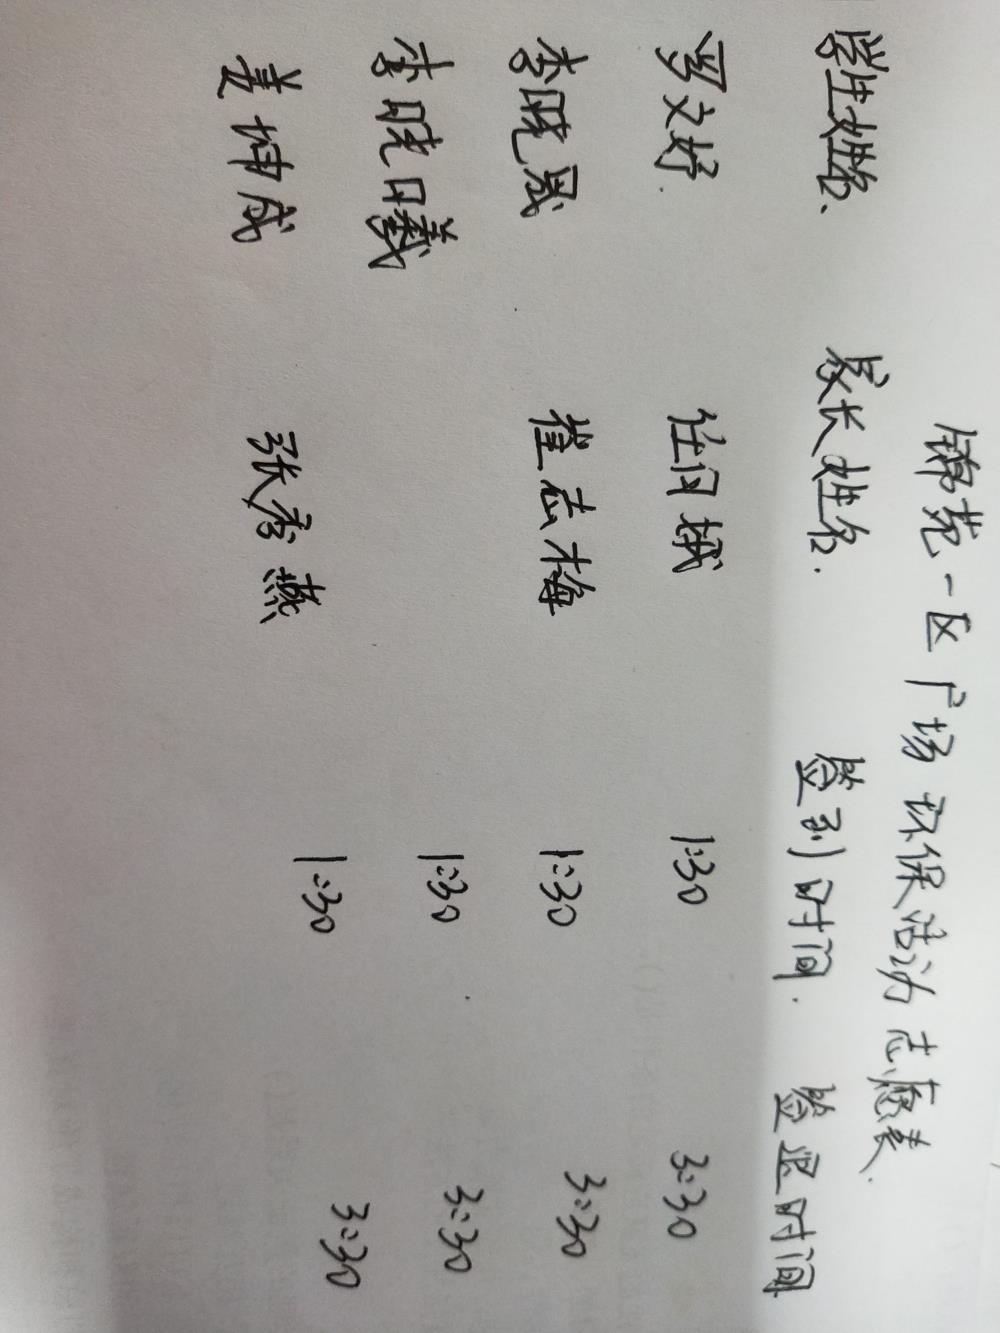 锦苑一区广场环保活动志愿表.
学生姓名. 家长姓名. 签到时间. 签退时间
罗文好. 任闪娥 1:30 3:30
李晓晟 崔志梅 1:30 3:30
李晓曦 1:30 3:30
姜坤成 张秀燕 1:30 3:30